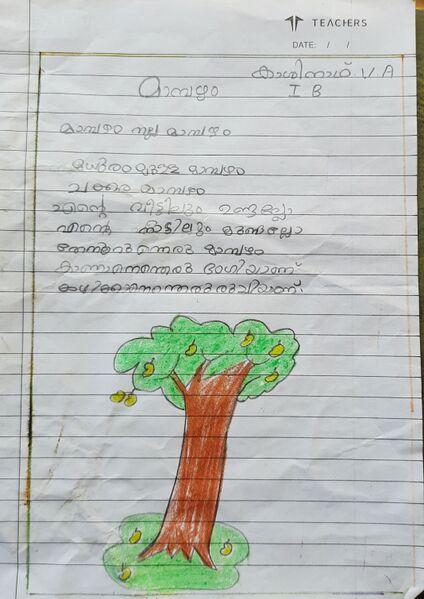 TEACHERS
DATE: / /
കാശിനാഥ് V.A
മാമ്പഴം I B
മാമ്പഴം നല്ല മാമ്പഴം
മധുരമുള്ള മാമ്പഴം
ചക്കര മാമ്പഴം
എന്റെ വീട്ടിലും ഉണ്ടല്ലോ
എന്റെ നാട്ടിലും ഉണ്ടല്ലോ
മാമ്പഴം
കാണാനെന്തൊരു ഭംഗിയാണ്
കഴിക്കാനെന്തൊരു രുചിയാണ്.